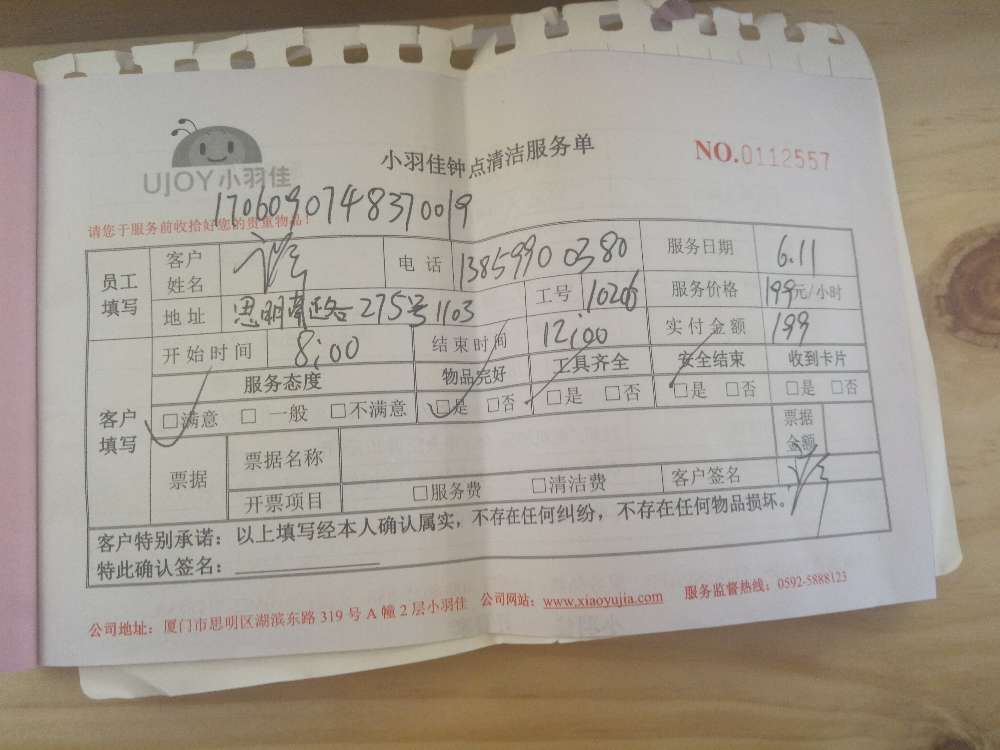 UJOY小羽佳
小羽佳钟点清洁服务单
NO.0112557
1706090748370019
请您于服务前收拾好您的贵重物品!
员工填写 客户姓名 电话 13859900380 服务日期 6.11
地址 思明 275号1103 工号 10206 服务价格 199元/小时
客户填写 开始时间 8:00 结束时间 12:00 实付金额 199
服务态度 物品完好 工具齐全 安全结束 收到卡片
□满意 □一般 □不满意 □是 □否 □是 □否 □是 □否 □是 □否
票据 票据名称 票据金额
开票项目 □服务费 □清洁费 客户签名
客户特别承诺：以上填写经本人确认属实，不存在任何纠纷，不存在任何物品损坏。
特此确认签名：
公司地址：厦门市思明区湖滨东路319号A幢2层小羽佳 公司网站：www.xiaoyujia.com 服务监督热线：0592-5888123